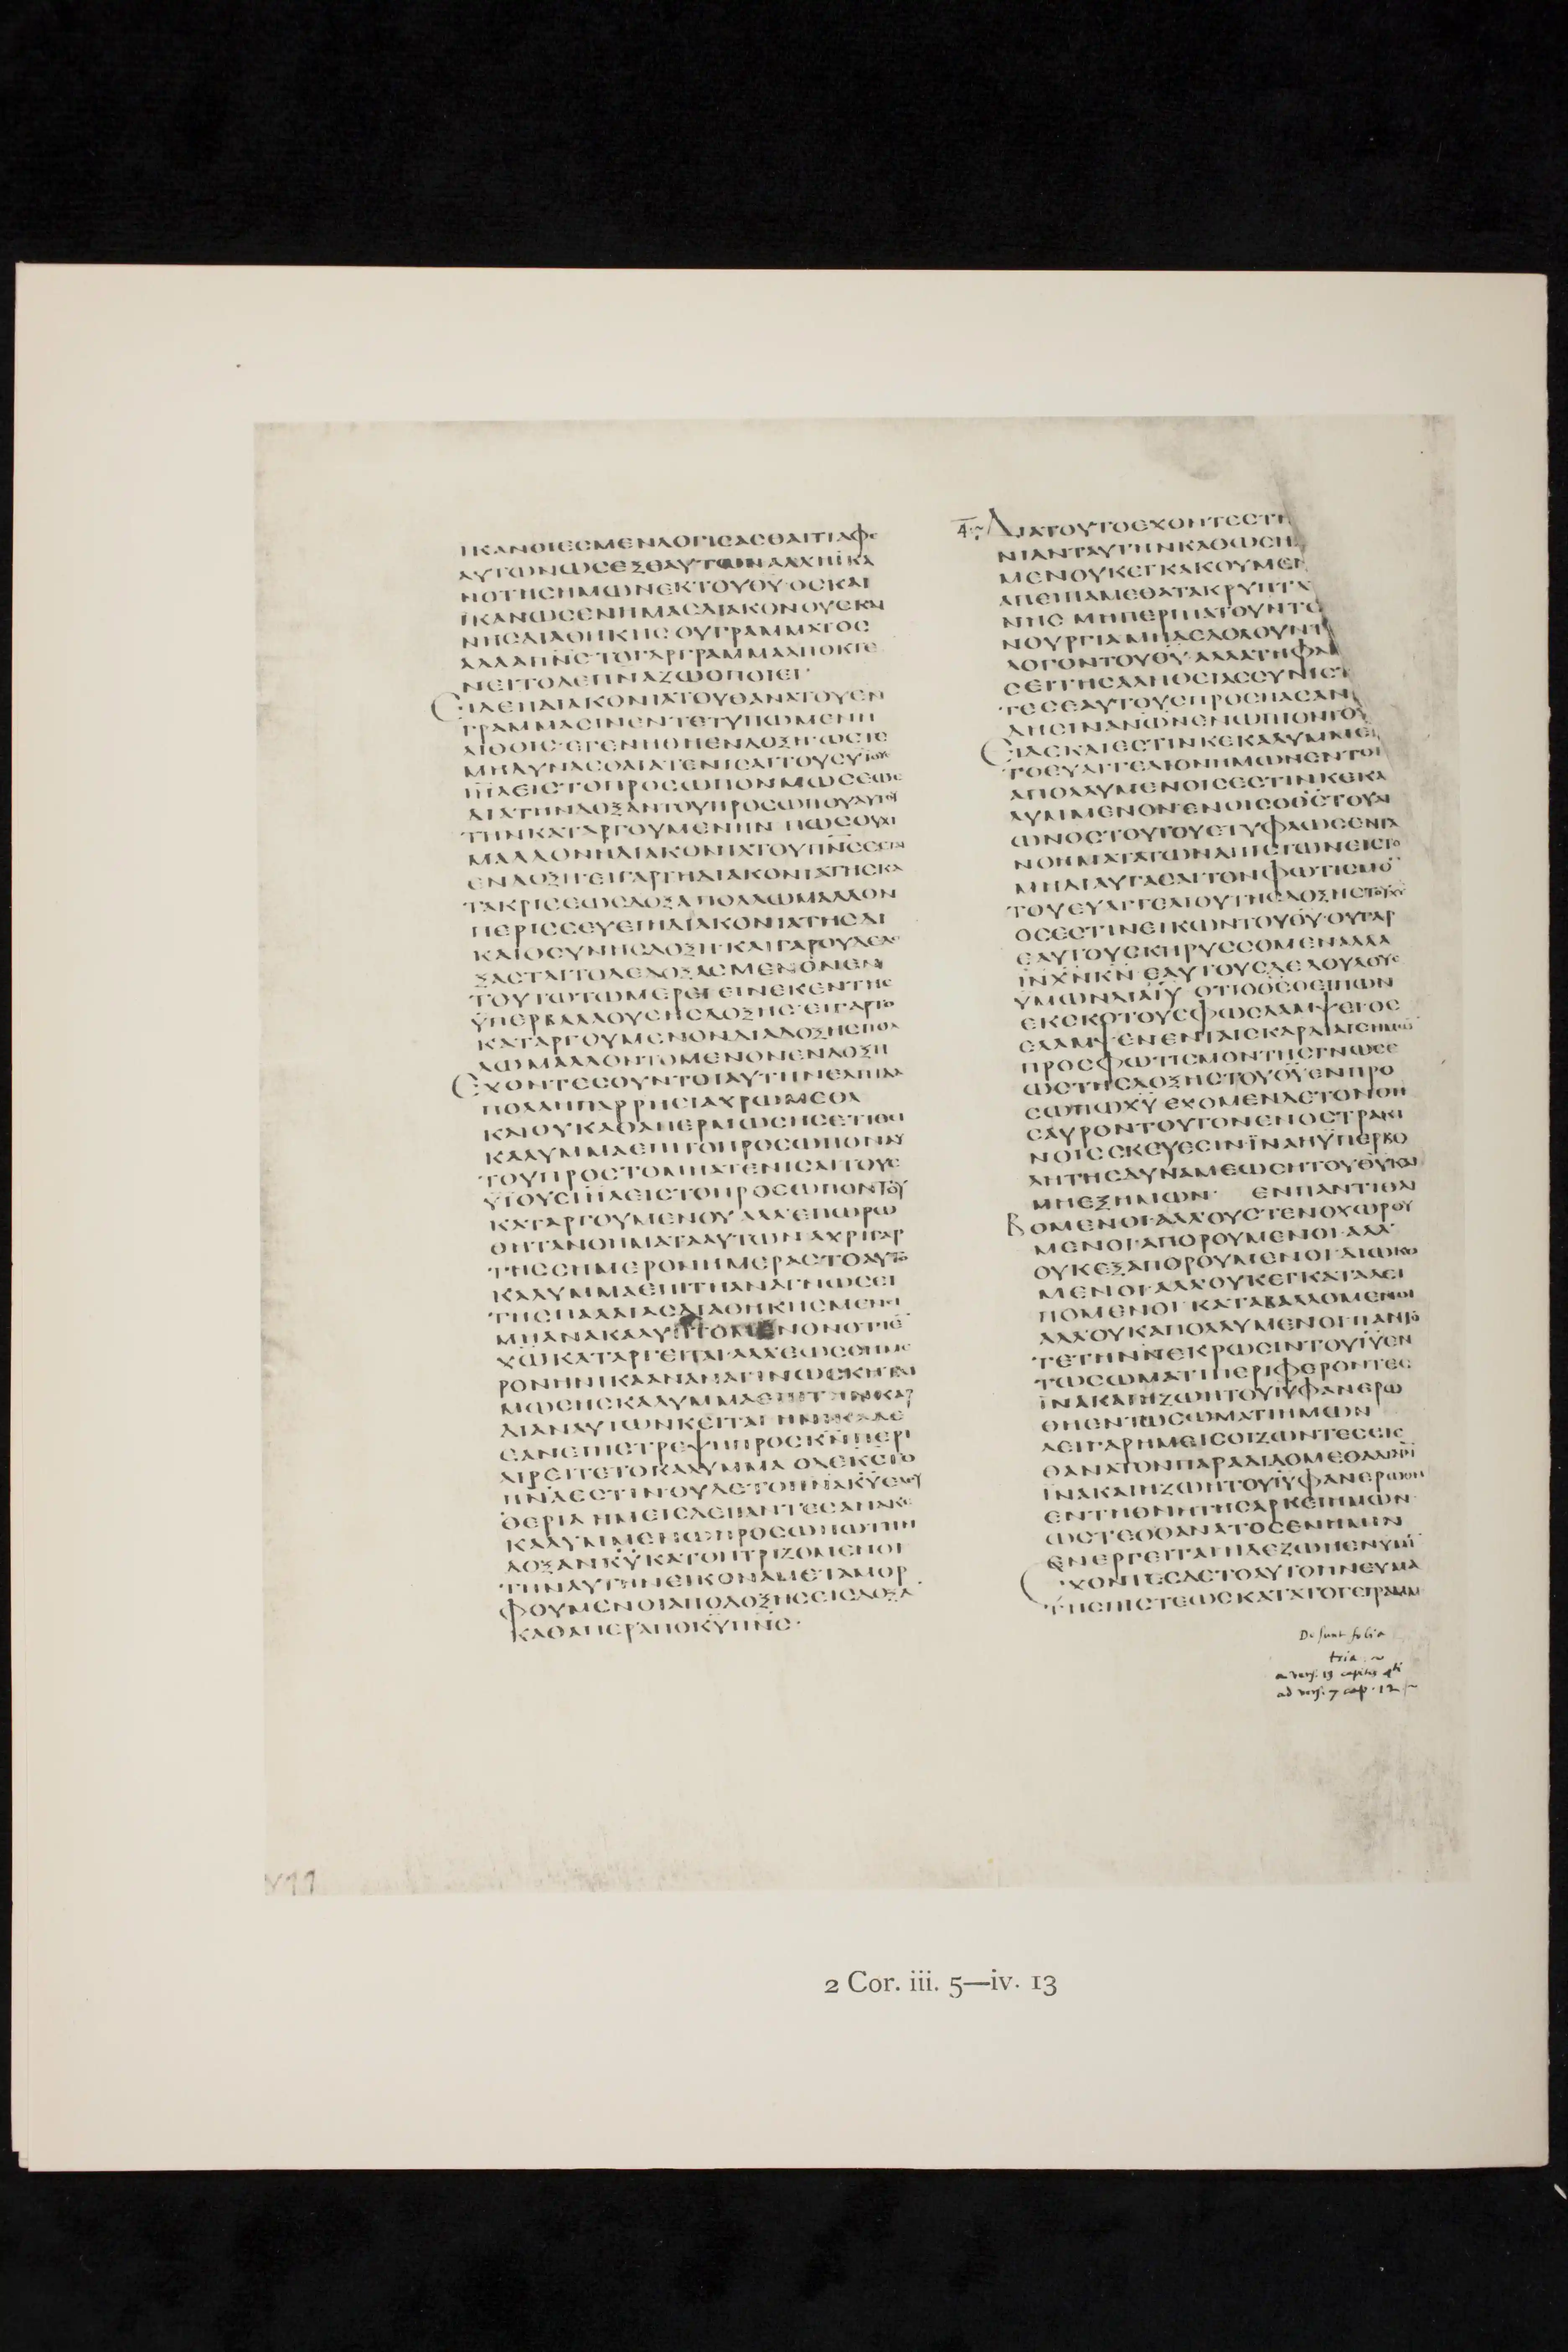 ΙΚΑΝΟΙΕСΜΕΝΛΟΓΙСΑСΘΑΙΤΙΑΦΕ
ΑΥΤΩΝΩСΕΞΕΑΥΤΩΝΑΛΛΗΙΚΑ
ΝΟΤΗСΗΜΩΝΕΚΤΟΥΘΥ·ΟСΚΑΙ
ΙΚΑΝΩСΕΝΗΜΑСΔΙΑΚΟΝΟΥСΚΑΙ
ΝΗСΔΙΑΘΗΚΗСΟΥΓΡΑΜΜΑΤΟС
ΑΛΛΑΠΝС·ΤΟΓΑΡΓΡΑΜΜΑΑΠΟΚΤΕ
ΝΕΙΤΟΔΕΠΝΑΖΩΟΠΟΙΕΙ·
ΕΙΔΕΗΔΙΑΚΟΝΙΑΤΟΥΘΑΝΑΤΟΥΕΝ
ΓΡΑΜΜΑСΙΝΕΝΤΕΤΥΠΩΜΕΝΗ
ΛΙΘΟΙС·ΕΓΕΝΗΘΗΕΝΔΟΞΗ·ΩСΤΕ
ΜΗΔΥΝΑСΘΑΙΑΤΕΝΙСΑΙΤΟΥСΥΙΟΥС
ΙΗΛΕΙСΤΟΠΡΟСΩΠΟΝΜΩСΕΩС
ΔΙΑΤΗΝΔΟΞΑΝΤΟΥΠΡΟСΩΠΟΥΑΥΤΟΥ
ΤΗΝΚΑΤΑΡΓΟΥΜΕΝΗΝ ΠΩСΟΥΧΙ
ΜΑΛΛΟΝΗΔΙΑΚΟΝΙΑΤΟΥΠΝСΕСΤΑΙ
ΕΝΔΟΞΗ·ΕΙΓΑΡΤΗΔΙΑΚΟΝΙΑΤΗСΚΑ
ΤΑΚΡΙСΕΩСΔΟΞΑΠΟΛΛΩΜΑΛΛΟΝ
ΠΕΡΙССΕΥΕΙΗΔΙΑΚΟΝΙΑΤΗСΔΙ
ΚΑΙΟСΥΝΗСΔΟΞΗ·ΚΑΙΓΑΡΟΥΔΕΔΟ
ΞΑСΤΑΙΤΟΔΕΔΟΞΑСΜΕΝΟΝΕΝ
ΤΟΥΤΩΤΩΜΕΡΕΙΕΙΝΕΚΕΝΤΗС
ΥΠΕΡΒΑΛΛΟΥСΗСΔΟΞΗС·ΕΙΓΑΡΤΟ
ΚΑΤΑΡΓΟΥΜΕΝΟΝΔΙΑΔΟΞΗСΠΟΛ
ΛΩΜΑΛΛΟΝΤΟΜΕΝΟΝΕΝΔΟΞΗ
ΕΧΟΝΤΕСΟΥΝΤΟΙΑΥΤΗΝΕΛΠΙΔΑ
ΠΟΛΛΗΠΑΡΡΗСΙΑΧΡΩΜΕΘΑ
ΚΑΙΟΥΚΑΘΑΠΕΡΜΩСΗСΕΤΙΘΕΙ
ΚΑΛΥΜΜΑΕΠΙΤΟΠΡΟСΩΠΟΝΑΥ
ΤΟΥΠΡΟСΤΟΜΗΑΤΕΝΙСΑΙΤΟΥС
ΥΙΟΥСΙΗΛΕΙСΤΟΠΡΟСΩΠΟΝΤΟΥ
ΚΑΤΑΡΓΟΥΜΕΝΟΥ ΑΛΛΕΠΩΡΩ
ΘΗΤΑΝΟΗΜΑΤΑΑΥΤΩΝ ΑΧΡΙΓΑΡ
ΤΗССΗΜΕΡΟΝΗΜΕΡΑСΤΟΑΥΤΟ
ΚΑΛΥΜΜΑΕΠΙΤΗΑΝΑΓΝΩСΕΙ
ΤΗСΠΑΛΑΙΑСΔΙΑΘΗΚΗСΜΕΝΕΙ
ΜΗΑΝΑΚΑΛΥΠΤΟΜΕΝΟΝΟΤΙΕ
ΧΩΚΑΤΑΡΓΕΙΤΑΙ·ΑΛΛΕΩССΗΜΕ
ΡΟΝΗΝΙΚΑΑΝΑΝΑΓΙΝΩСΚΗΤΑΙ
ΜΩСΗСΚΑΛΥΜΜΑΕΠΙΤΗΝΚΑΡ
ΔΙΑΝΑΥΤΩΝΚΕΙΤΑΙ ΗΝΙΚΑΔΕ
ΕΑΝΕΠΙСΤΡΕΨΗΠΡΟСΚΝΠΕΡΙ
ΑΙΡΕΙΤΕΤΟΚΑΛΥΜΜΑ ΟΔΕΚСΤΟ
ΠΝΑΕСΤΙΝΟΥΔΕΤΟΠΝΑΚΥΕΛΕΥ
ΘΕΡΙΑ ΗΜΕΙСΔΕΠΑΝΤΕСΑΝΑΚΕ
ΚΑΛΥΜΜΕΝΩΠΡΟСΩΠΩΤΗΝ
ΔΟΞΑΝΚΥΚΑΤΟΠΤΡΙΖΟΜΕΝΟΙ
ΤΗΝΑΥΤΗΝΕΙΚΟΝΑΜΕΤΑΜΟΡ
ΦΟΥΜΕΝΟΙΑΠΟΔΟΞΗСΕΙСΔΟΞΑ
ΚΑΘΑΠΕΡΑΠΟΚΥΠΝС·
4 ΔΙΑΤΟΥΤΟΕΧΟΝΤΕСΤΗ
ΝΙΑΝΤΑΥΤΗΝΚΑΘΩСΗ
ΜΕΝΟΥΚΕΓΚΑΚΟΥΜΕΝ
ΑΠΕΙΠΑΜΕΘΑΤΑΚΡΥΠΤΑ
ΝΗС ΜΗΠΕΡΙΠΑΤΟΥΝΤΕ
ΝΟΥΡΓΙΑΜΗΔΕΔΟΛΟΥΝΤ
ΛΟΓΟΝΤΟΥΘΥ·ΑΛΛΑΤΗΦΑ
СΕΙΤΗСΑΛΗΘΕΙΑССΥΝΙСΤ
ΤΕСΕΑΥΤΟΥСΠΡΟСΠΑСΑΝ
ΔΗСΙΝΑΝΩΝΕΝΩΠΙΟΝΤΟΥ
ΕΙΔΕΚΑΙΕСΤΙΝΚΕΚΑΛΥΜΜΕ
ΤΟΕΥΑΓΓΕΛΙΟΝΗΜΩΝΕΝΤΟΙ
ΑΠΟΛΛΥΜΕΝΟΙСΕСΤΙΝΚΕΚΑ
ΛΥΜΜΕΝΟΝ·ΕΝΟΙСΟΘСΤΟΥΑΙ
ΩΝΟСΤΟΥΤΟΥΕΤΥΦΛΩСΕΝΤΑ
ΝΟΗΜΑΤΑΤΩΝΑΠΙСΤΩΝΕΙСΤΟ
ΜΗΔΙΑΥΓΑСΑΙΤΟΝΦΩΤΙСΜΟ
ΤΟΥΕΥΑΓΓΕΛΙΟΥΤΗСΔΟΞΗСΤΟΥΧΥ
ΟСΕСΤΙΝΕΙΚΩΝΤΟΥΘΥ·ΟΥΓΑΡ
ΕΑΥΤΟΥСΚΗΡΥССΟΜΕΝΑΛΛΑ
ΙΝΧΝΚΝ ΕΑΥΤΟΥСΔΕΔΟΥΛΟΥС
ΥΜΩΝΔΙΑΙΥ ΟΤΙΟΘСΟΕΙΠΩΝ
ΕΚСΚΟΤΟΥСΦΩСΛΑΜΨΕΙΟС
ΕΛΑΜΨΕΝΕΝΤΑΙСΚΑΡΔΙΑΙСΗΜΩ
ΠΡΟСΦΩΤΙСΜΟΝΤΗСΓΝΩСΕ
ΩСΤΗСΔΟΞΗСΤΟΥΘΥΕΝΠΡΟ
СΩΠΩΧΥ ΕΧΟΜΕΝΔΕΤΟΝΘΗ
СΑΥΡΟΝΤΟΥΤΟΝΕΝΟСΤΡΑΚΙ
ΝΟΙССΚΕΥΕСΙΝΙΝΑΗΥΠΕΡΒΟ
ΛΗΤΗСΔΥΝΑΜΕΩСΗΤΟΥΘΥΚΑΙ
ΜΗΕΞΗΜΩΝ· ΕΝΠΑΝΤΙΘΛΙ
ΒΟΜΕΝΟΙ·ΑΛΛΟΥСΤΕΝΟΧΩΡΟΥ
ΜΕΝΟΙ·ΑΠΟΡΟΥΜΕΝΟΙ·ΑΛΛ
ΟΥΚΕΞΑΠΟΡΟΥΜΕΝΟΙ·ΔΙΩΚΟ
ΜΕΝΟΙ·ΑΛΛΟΥΚΕΓΚΑΤΑΛΕΙ
ΠΟΜΕΝΟΙ·ΚΑΤΑΒΑΛΛΟΜΕΝΟΙ
ΑΛΛΟΥΚΑΠΟΛΛΥΜΕΝΟΙ·ΠΑΝΤΟ
ΤΕΤΗΝΝΕΚΡΩСΙΝΤΟΥΙΥΕΝ
ΤΩСΩΜΑΤΙΠΕΡΙΦΕΡΟΝΤΕС
ΙΝΑΚΑΙΗΖΩΗΤΟΥΙΥΦΑΝΕΡΩ
ΘΗΕΝΤΩСΩΜΑΤΙΗΜΩΝ
ΑΕΙΓΑΡΗΜΕΙСΟΙΖΩΝΤΕСΕΙС
ΘΑΝΑΤΟΝΠΑΡΑΔΙΔΟΜΕΘΑΔΙΑΙΝ
ΙΝΑΚΑΙΗΖΩΗΤΟΥΙΥΦΑΝΕΡΩΘΗ
ΕΝΤΗΘΝΗΤΗСΑΡΚΕΙΗΜΩΝ
ΩСΤΕΟΘΑΝΑΤΟСΕΝΗΜΙΝ
ΕΝΕΡΓΕΙΤΑΙΗΔΕΖΩΗΕΝΥΜΙ
ΕΧΟΝΤΕСΔΕΤΟΑΥΤΟΠΝΕΥΜΑ
ΤΗСΠΙСΤΕΩСΚΑΤΑΤΟΓΕΓΡΑΜΜ
Desunt folia
tria. ~
a vers. 13 capitis 4ti
ad vers. 7 cap. 12 ~
2 Cor. iii. 5—iv. 13